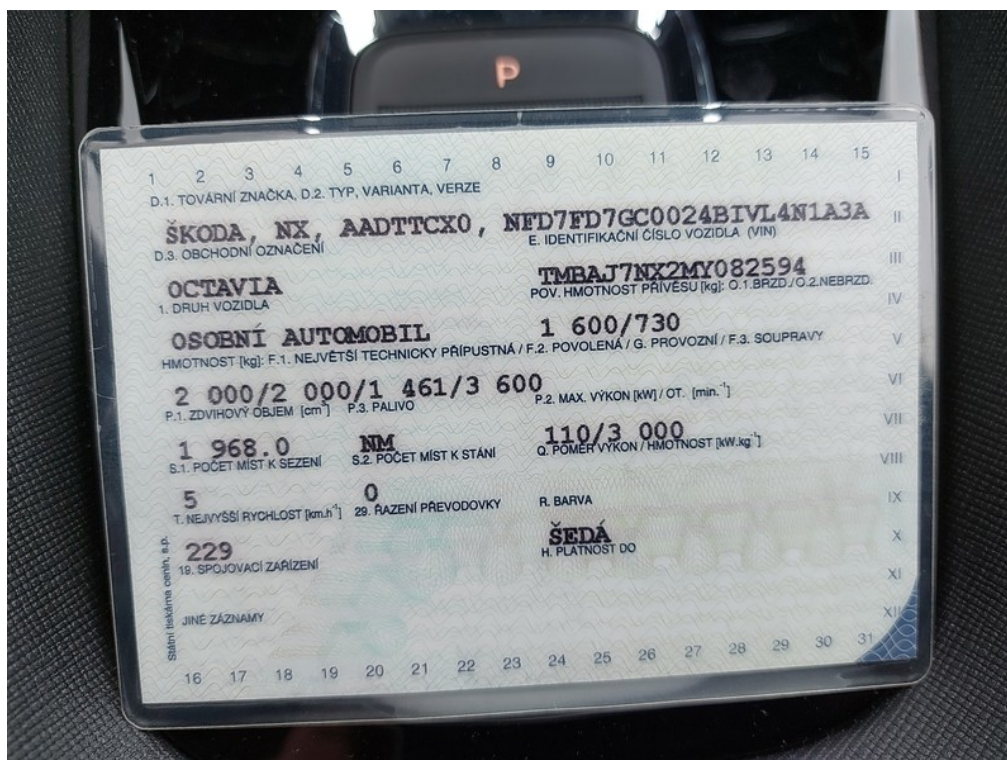 P
1 2 3 4 5 6 7 8 9 10 11 12 13 14 15
I
D.1. TOVÁRNÍ ZNAČKA, D.2. TYP, VARIANTA, VERZE
ŠKODA, NX, AADTTCX0, NFD7FD7GC0024BIVL4N1A3A
II
D.3. OBCHODNÍ OZNAČENÍ
E. IDENTIFIKAČNÍ ČÍSLO VOZIDLA (VIN)
OCTAVIA
TMBAJ7NX2MY082594
III
1. DRUH VOZIDLA
POV. HMOTNOST PŘÍVĚSU [kg]: O.1.BRZD./O.2.NEBRZD.
IV
OSOBNÍ AUTOMOBIL
1 600/730
V
HMOTNOST [kg]: F.1. NEJVĚTŠÍ TECHNICKY PŘÍPUSTNÁ / F.2. POVOLENÁ / G. PROVOZNÍ / F.3. SOUPRAVY
2 000/2 000/1 461/3 600
VI
P.1. ZDVIHOVÝ OBJEM [cm³]
P.3. PALIVO
P.2. MAX. VÝKON [kW] / OT. [min.⁻¹]
1 968.0
NM
110/3 000
VII
S.1. POČET MÍST K SEZENÍ
S.2. POČET MÍST K STÁNÍ
Q. POMĚR VÝKON / HMOTNOST [kW.kg⁻¹]
VIII
5
0
IX
T. NEJVYŠŠÍ RYCHLOST [km.h⁻¹]
29. ŘAZENÍ PŘEVODOVKY
R. BARVA
229
ŠEDÁ
X
19. SPOJOVACÍ ZAŘÍZENÍ
H. PLATNOST DO
XI
JINÉ ZÁZNAMY
XII
Státní tiskárna cenin, s.p.
16 17 18 19 20 21 22 23 24 25 26 27 28 29 30 31